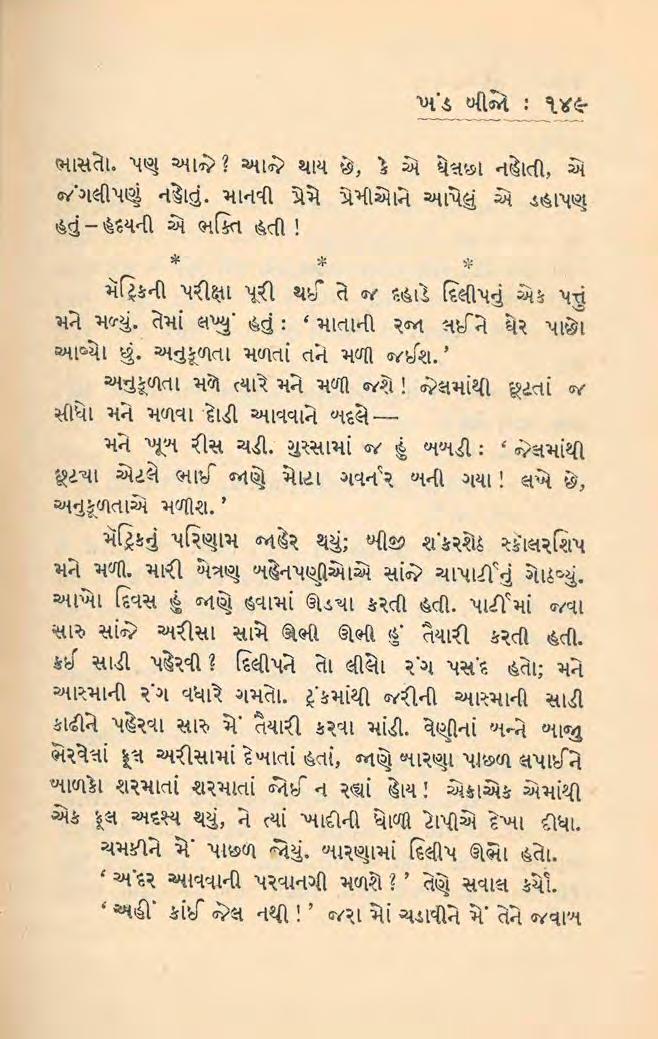 ખંડ બીજો : ૧૪૯
ભાસતો. પણ આજે? આજે થાય છે, કે એ ઘેલછા નહોતી, એ
જંગલીપણું નહોતું. માનવી પ્રેમે પ્રેમીઓને આપેલું એ ડહાપણ
હતું – હૃદયની એ ભક્તિ હતી !
* * *
મૅટ્રિકની પરીક્ષા પૂરી થઈ તે જ દહાડે દિલીપનું એક પત્તું
મને મળ્યું. તેમાં લખ્યું હતું : ‘ માતાની રજા લઈને ઘેર પાછો
આવ્યો છું. અનુકૂળતા મળતાં તને મળી જઈશ. ’
અનુકૂળતા મળે ત્યારે મને મળી જશે ! જેલમાંથી છૂટતાં જ
સીધો મને મળવા દોડી આવવાને બદલે—
મને ખૂબ રીસ ચડી. ગુસ્સામાં જ હું બબડી : ‘ જેલમાંથી
છૂટ્યા એટલે ભાઈ જાણે મોટા ગવર્નર બની ગયા ! લખે છે,
અનુકૂળતાએ મળીશ. ’
મૅટ્રિકનું પરિણામ જાહેર થયું; બીજી શંકરશેઠ સ્કૉલરશિપ
મને મળી. મારી બેત્રણ બહેનપણીઓએ સાંજે ચાપાર્ટીનું ગોઠવ્યું.
આખો દિવસ હું જાણે હવામાં ઊડ્યા કરતી હતી. પાર્ટીમાં જવા
સારુ સાંજે અરીસા સામે ઊભી ઊભી હું તૈયારી કરતી હતી.
કઈ સાડી પહેરવી ? દિલીપને તો લીલો રંગ પસંદ હતો; મને
આસ્માની રંગ વધારે ગમતો. ટ્રંકમાંથી જરીની આસ્માની સાડી
કાઢીને પહેરવા સારુ મેં તૈયારી કરવા માંડી. વેણીનાં બન્ને બાજુ
ભેરવેલાં ફૂલ અરીસામાં દેખાતાં હતાં, જાણે બારણા પાછળ લપાઈને
બાળકો શરમાતાં શરમાતાં જોઈ ન રહ્યાં હોય ! એકાએક એમાંથી
એક ફૂલ અદશ્ય થયું, ને ત્યાં ખાદીની ધોળી ટોપીએ દેખા દીધા.
ચમકીને મેં પાછળ જોયું. બારણામાં દિલીપ ઊભો હતો.
‘ અંદર આવવાની પરવાનગી મળશે ? ’ તેણે સવાલ કર્યો.
‘ અહીં કાંઈ જેલ નથી ! ’ જરા મોં ચડાવીને મેં તેને જવાબ